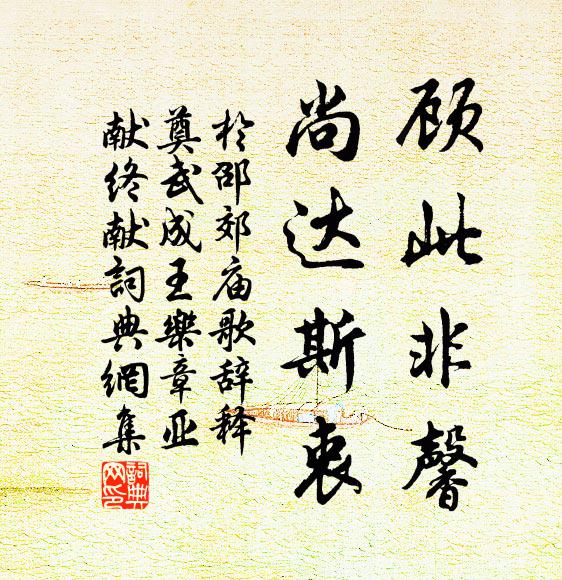 顾此非馨
尚达斯衷
於邵郊庙歌辞释
奠武成王樂章亚
献终献詞典網集
詞典
网印